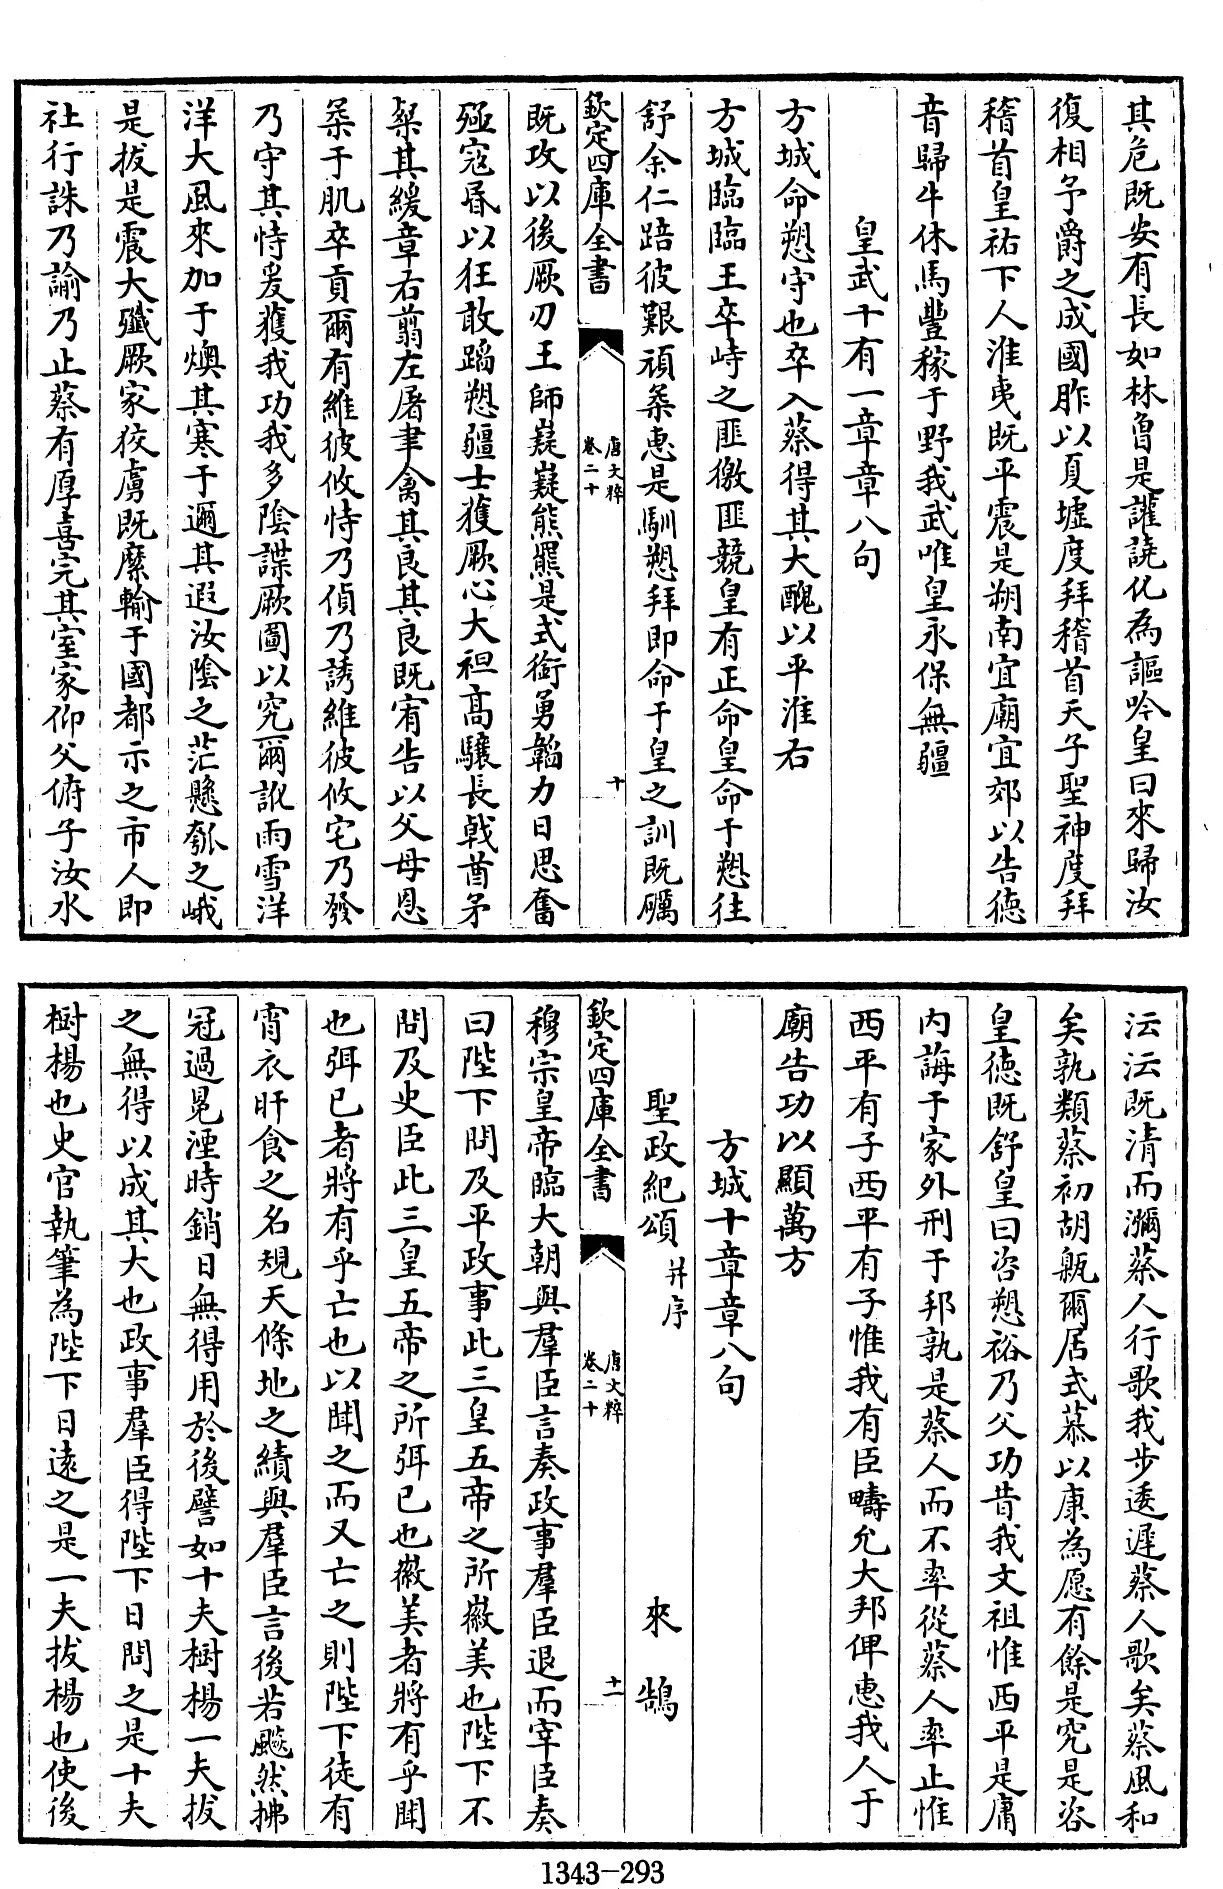 其危既安有長如林曾是讙譊化為謳吟皇曰來歸汝
復相予爵之成國胙以夏墟度拜稽首天子聖神度拜
稽首皇祐下人淮夷既平震是朔南宜廟宜郊以告德
音歸牛休馬豐稼于野我武唯皇永保無疆
皇武十有一章章八句
方城命愬守也卒入蔡得其大醜以平淮右
方城臨臨王卒峙之匪徼匪競皇有正命皇命于愬往
舒余仁踣彼艱頑柔惠是馴愬拜即命于皇之訓既礪
欽定四庫全書
唐文粹
卷二十
十
既攻以後厥刃王師嶷嶷熊羆是式銜勇韜力日思奮
殛寇昏以狂敢蹈愬疆士獲厥心大袒高驤長戟酋矛
粲其綏章右翦左屠聿禽其良其良既宥告以父母恩
柔于肌卒貢爾有維彼攸恃乃偵乃誘維彼攸宅乃發
乃守其恃爰獲我功我多陰諜厥圖以究爾訛雨雪洋
洋大風來加于燠其寒于邇其遐汝陰之茫懸瓠之峨
是拔是震大殲厥家狡虜既縻輸于國都示之市人即
社行誅乃諭乃止蔡有厚喜完其室家仰父俯子汝水
沄沄既清而瀰蔡人行歌我步逶遲蔡人歌矣蔡風和
矣孰類蔡初胡甈爾居式慕以康為愿有餘是究是咨
皇德既舒皇曰咨愬裕乃父功昔我文祖惟西平是庸
內誨于家外刑于邦孰是蔡人而不率從蔡人率止惟
西平有子西平有子惟我有臣疇允大邦俾惠我人于
廟告功以顯萬方
方城十章章八句
聖政紀頌 并序 來鵠
欽定四庫全書
唐文粹
卷二十
十一
穆宗皇帝臨大朝與羣臣言奏政事羣臣退而宰臣奏
曰陛下問及平政事此三皇五帝之所徽美也陛下不
問及史臣此三皇五帝之所弭已也徽美者將有乎聞
也弭已者將有乎亡也以聞之而又亡之則陛下徒有
宵衣旰食之名規天條地之績與羣臣言後若飈然拂
冠過冕湮時銷日無得用於後譬如十夫樹楊一夫拔
之無得以成其大也政事羣臣得陛下日問之是十夫
樹楊也史官執筆為陛下日遠之是一夫拔楊也使後
1343-293